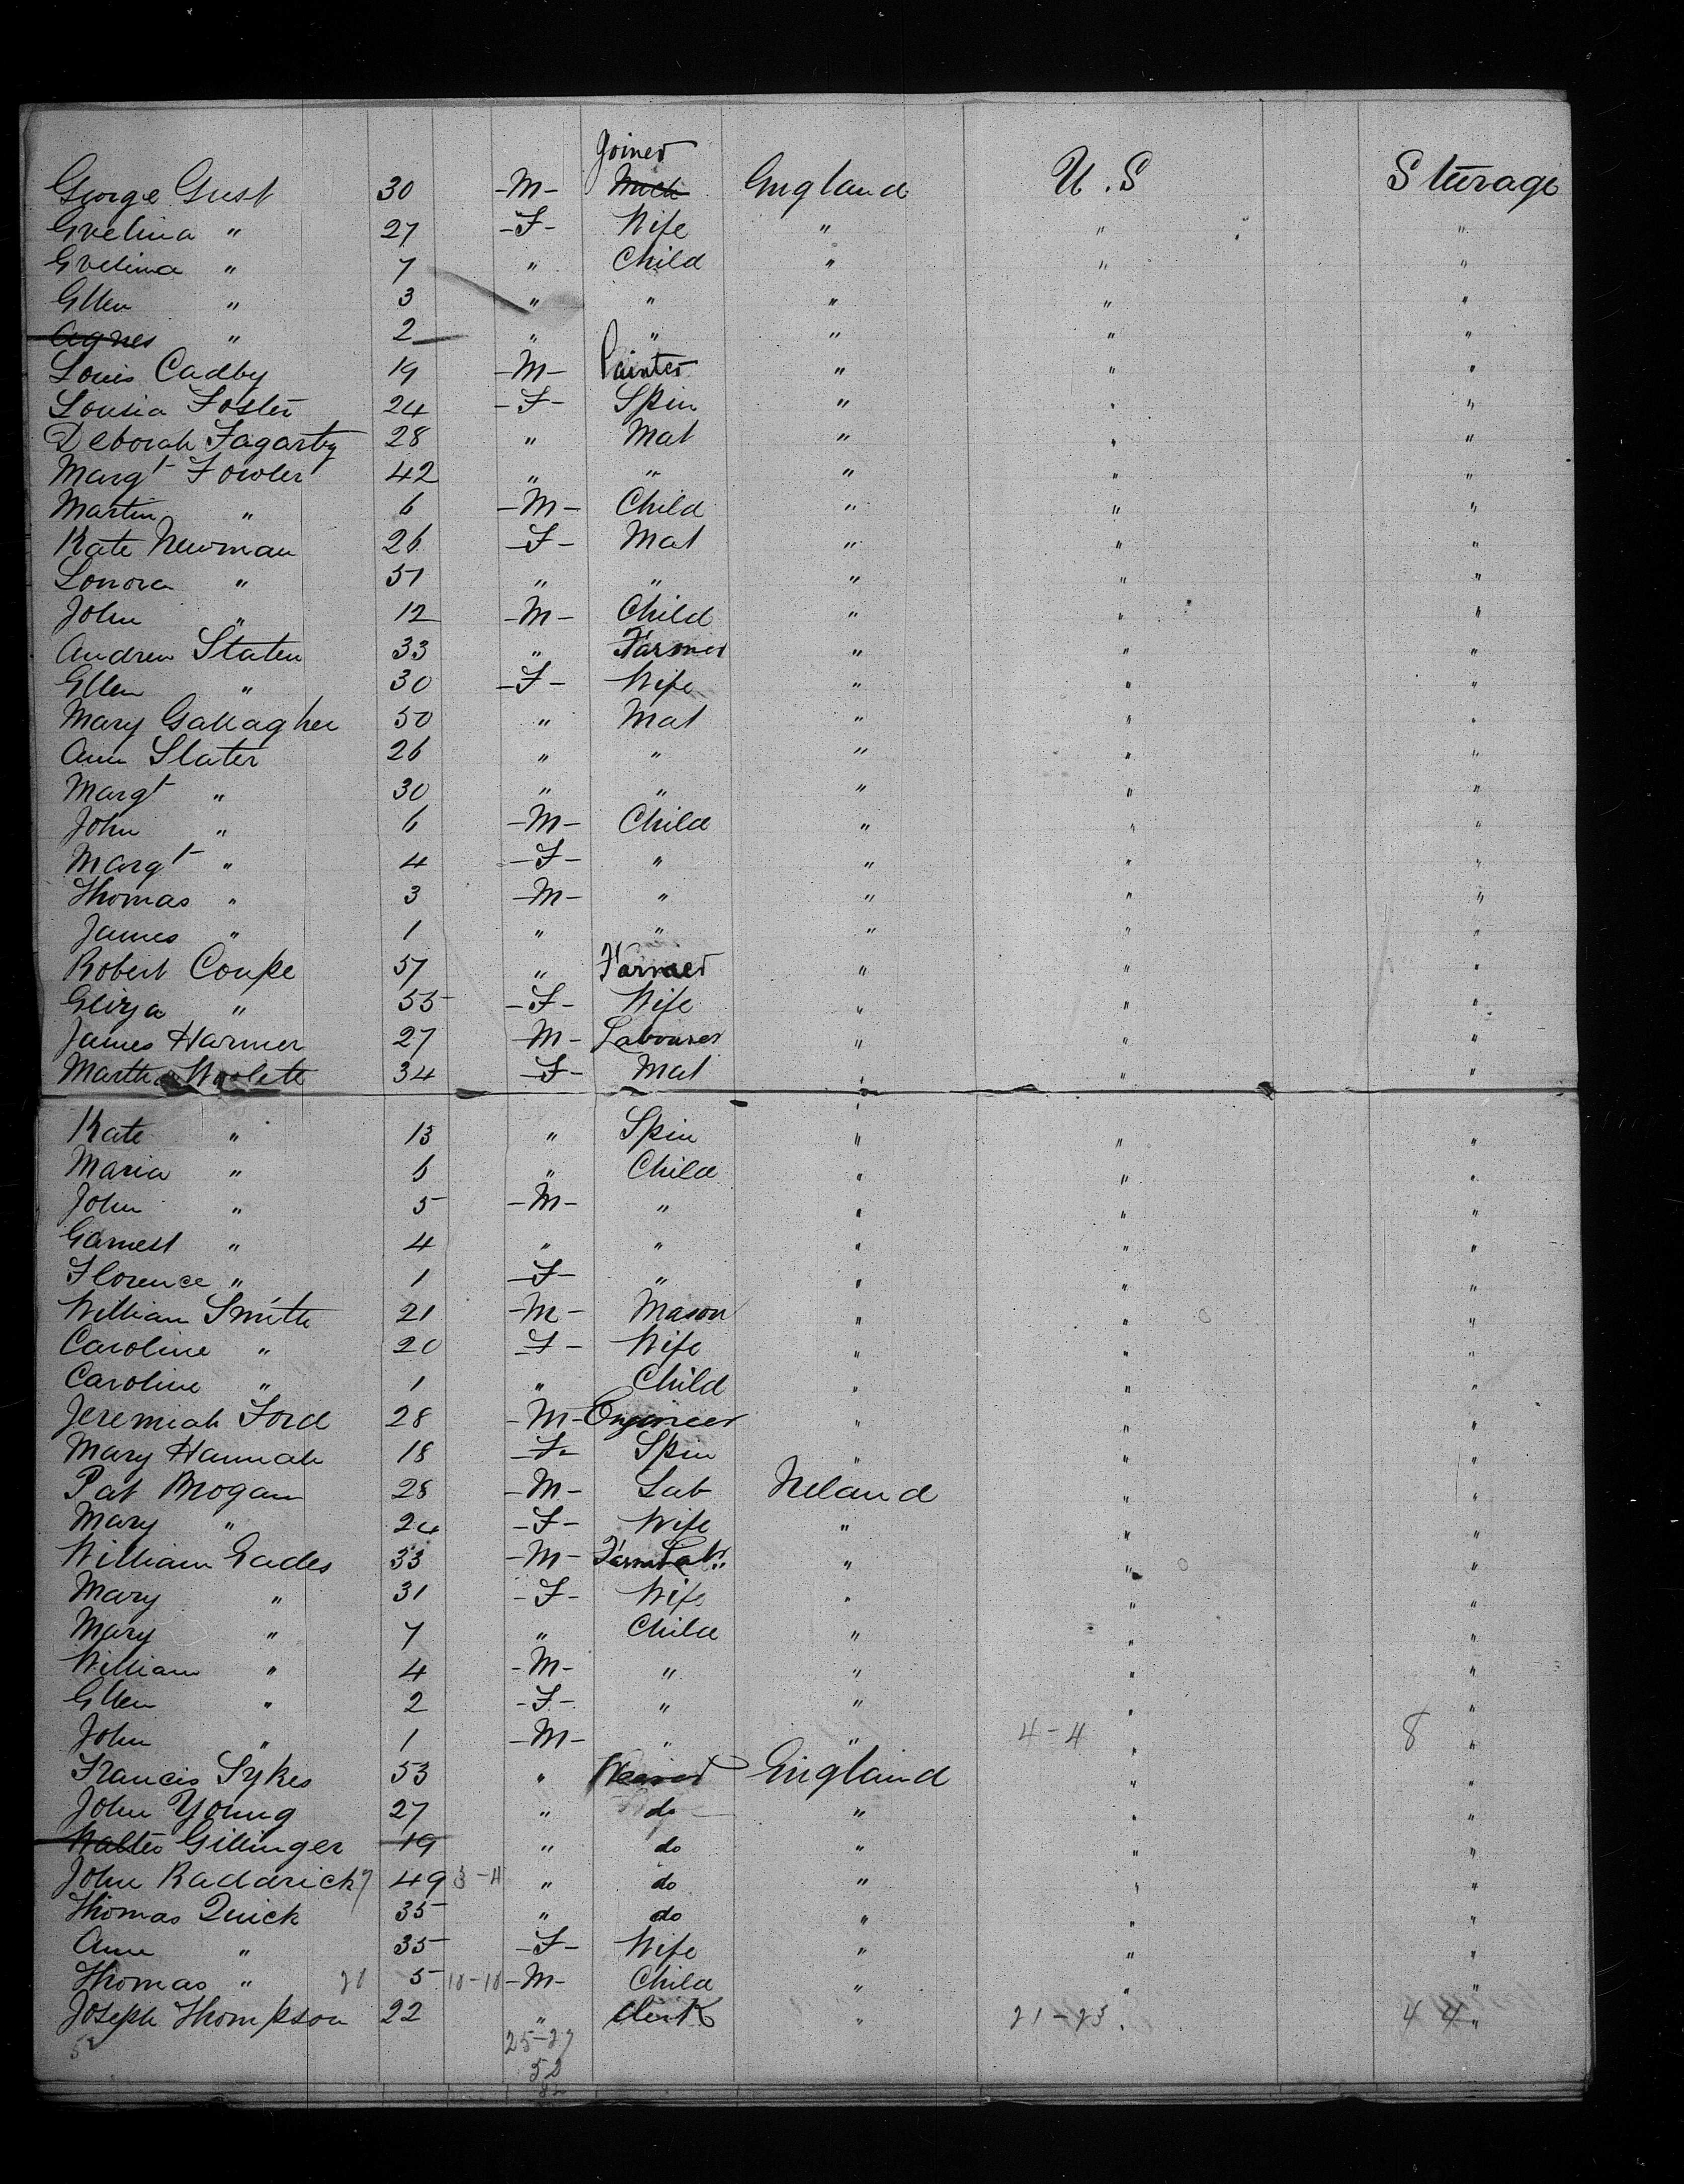 Joined
George Gust 30 -M- Mech England U.S Steerage
Evelina " 27 -F- Wife " " "
Evelina " 7 " Child " " "
Ellen " 3 " " " " "
Agnes " 2 " " " " "
Louis Cadby 19 -M- Painter " " "
Lousia Foster 24 -F- Spin " " "
Deborah Fagarty 28 " Mat " " "
Margt Fowler 42 " " " " "
Martin " 6 -M- Child " " "
Kate Newman 26 -F- Mat " " "
Lonora " 51 " " " " "
John " 12 -M- Child " " "
Andrew Staten 33 " Farmer " " "
Ellen " 30 -F- Wife " " "
Mary Gallagher 50 " Mat " " "
Ann Slater 26 " " " " "
Margt " 30 " " " " "
John " 6 -M- Child " " "
Margt " 4 -F- " " " "
Thomas " 3 -M- " " " "
James " 1 " " " " "
Robert Coupe 57 " Farmer " " "
Eliza " 55 -F- Wife " " "
James Harmer 27 -M- Labourer " " "
Martha 34 -F- Mat " " "
Kate " 13 " Spin " " "
Maria " 6 " Child " " "
John " 5 -M- " " " "
Earnest " 4 " " " " "
Florence " 1 -F- " " " "
William Smith 21 -M- Mason " " "
Caroline " 20 -F- Wife " " "
Caroline " 1 " Child " " "
Jeremiah Ford 28 -M- Engineer " " "
Mary Hannah 18 -F- Spin " " "
Pat Brogan 28 -M- Lab Ireland " "
Mary " 24 -F- Wife " " "
William Eades 33 -M- Farm Labr " " "
Mary " 31 -F- Wife " " "
Mary " 7 " Child " " "
William " 4 -M- " " " "
Ellen " 2 -F- " " " "
John " 1 -M- " " 4-4 " 8 "
Francis Sykes 53 " Weaver England " "
John Young 27 " do " " "
Walter Gillinger 19 " do " " "
John Raddrick 7 49 3-4 " do " " "
Thomas Quick 35 " do " " "
Ann " 35 -F- Wife " " "
Thomas " 5 10-10 -M- Child " " "
Joseph Thompson 22 " Clerk " 21-23 " 44 "
52 25-27
52